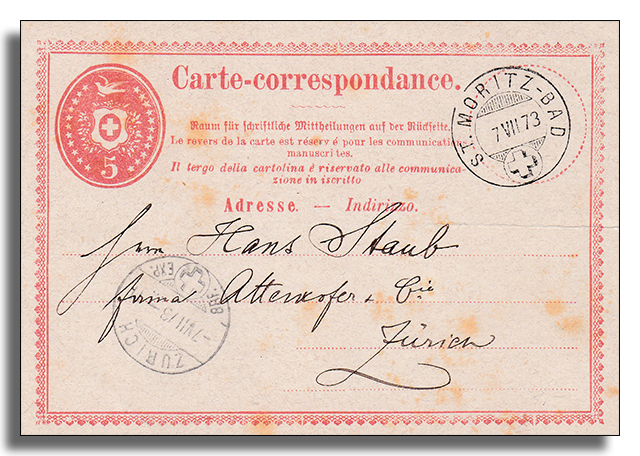 Carte-correspondance.
5
ST. MORITZ-BAD
7 VII 73
Raum für schriftliche Mittheilungen auf der Rückseite.
Le revers de la carte est réservé pour les communications
manuscrites.
Il tergo della cartolina è riservato alle communica-
zione in iscritto
Adresse. — Indirizzo.
Herrn Hans Staub
firma Attenhofer & Cie
Zürich
BRF. EXP.
-7 VII 73
ZÜRICH